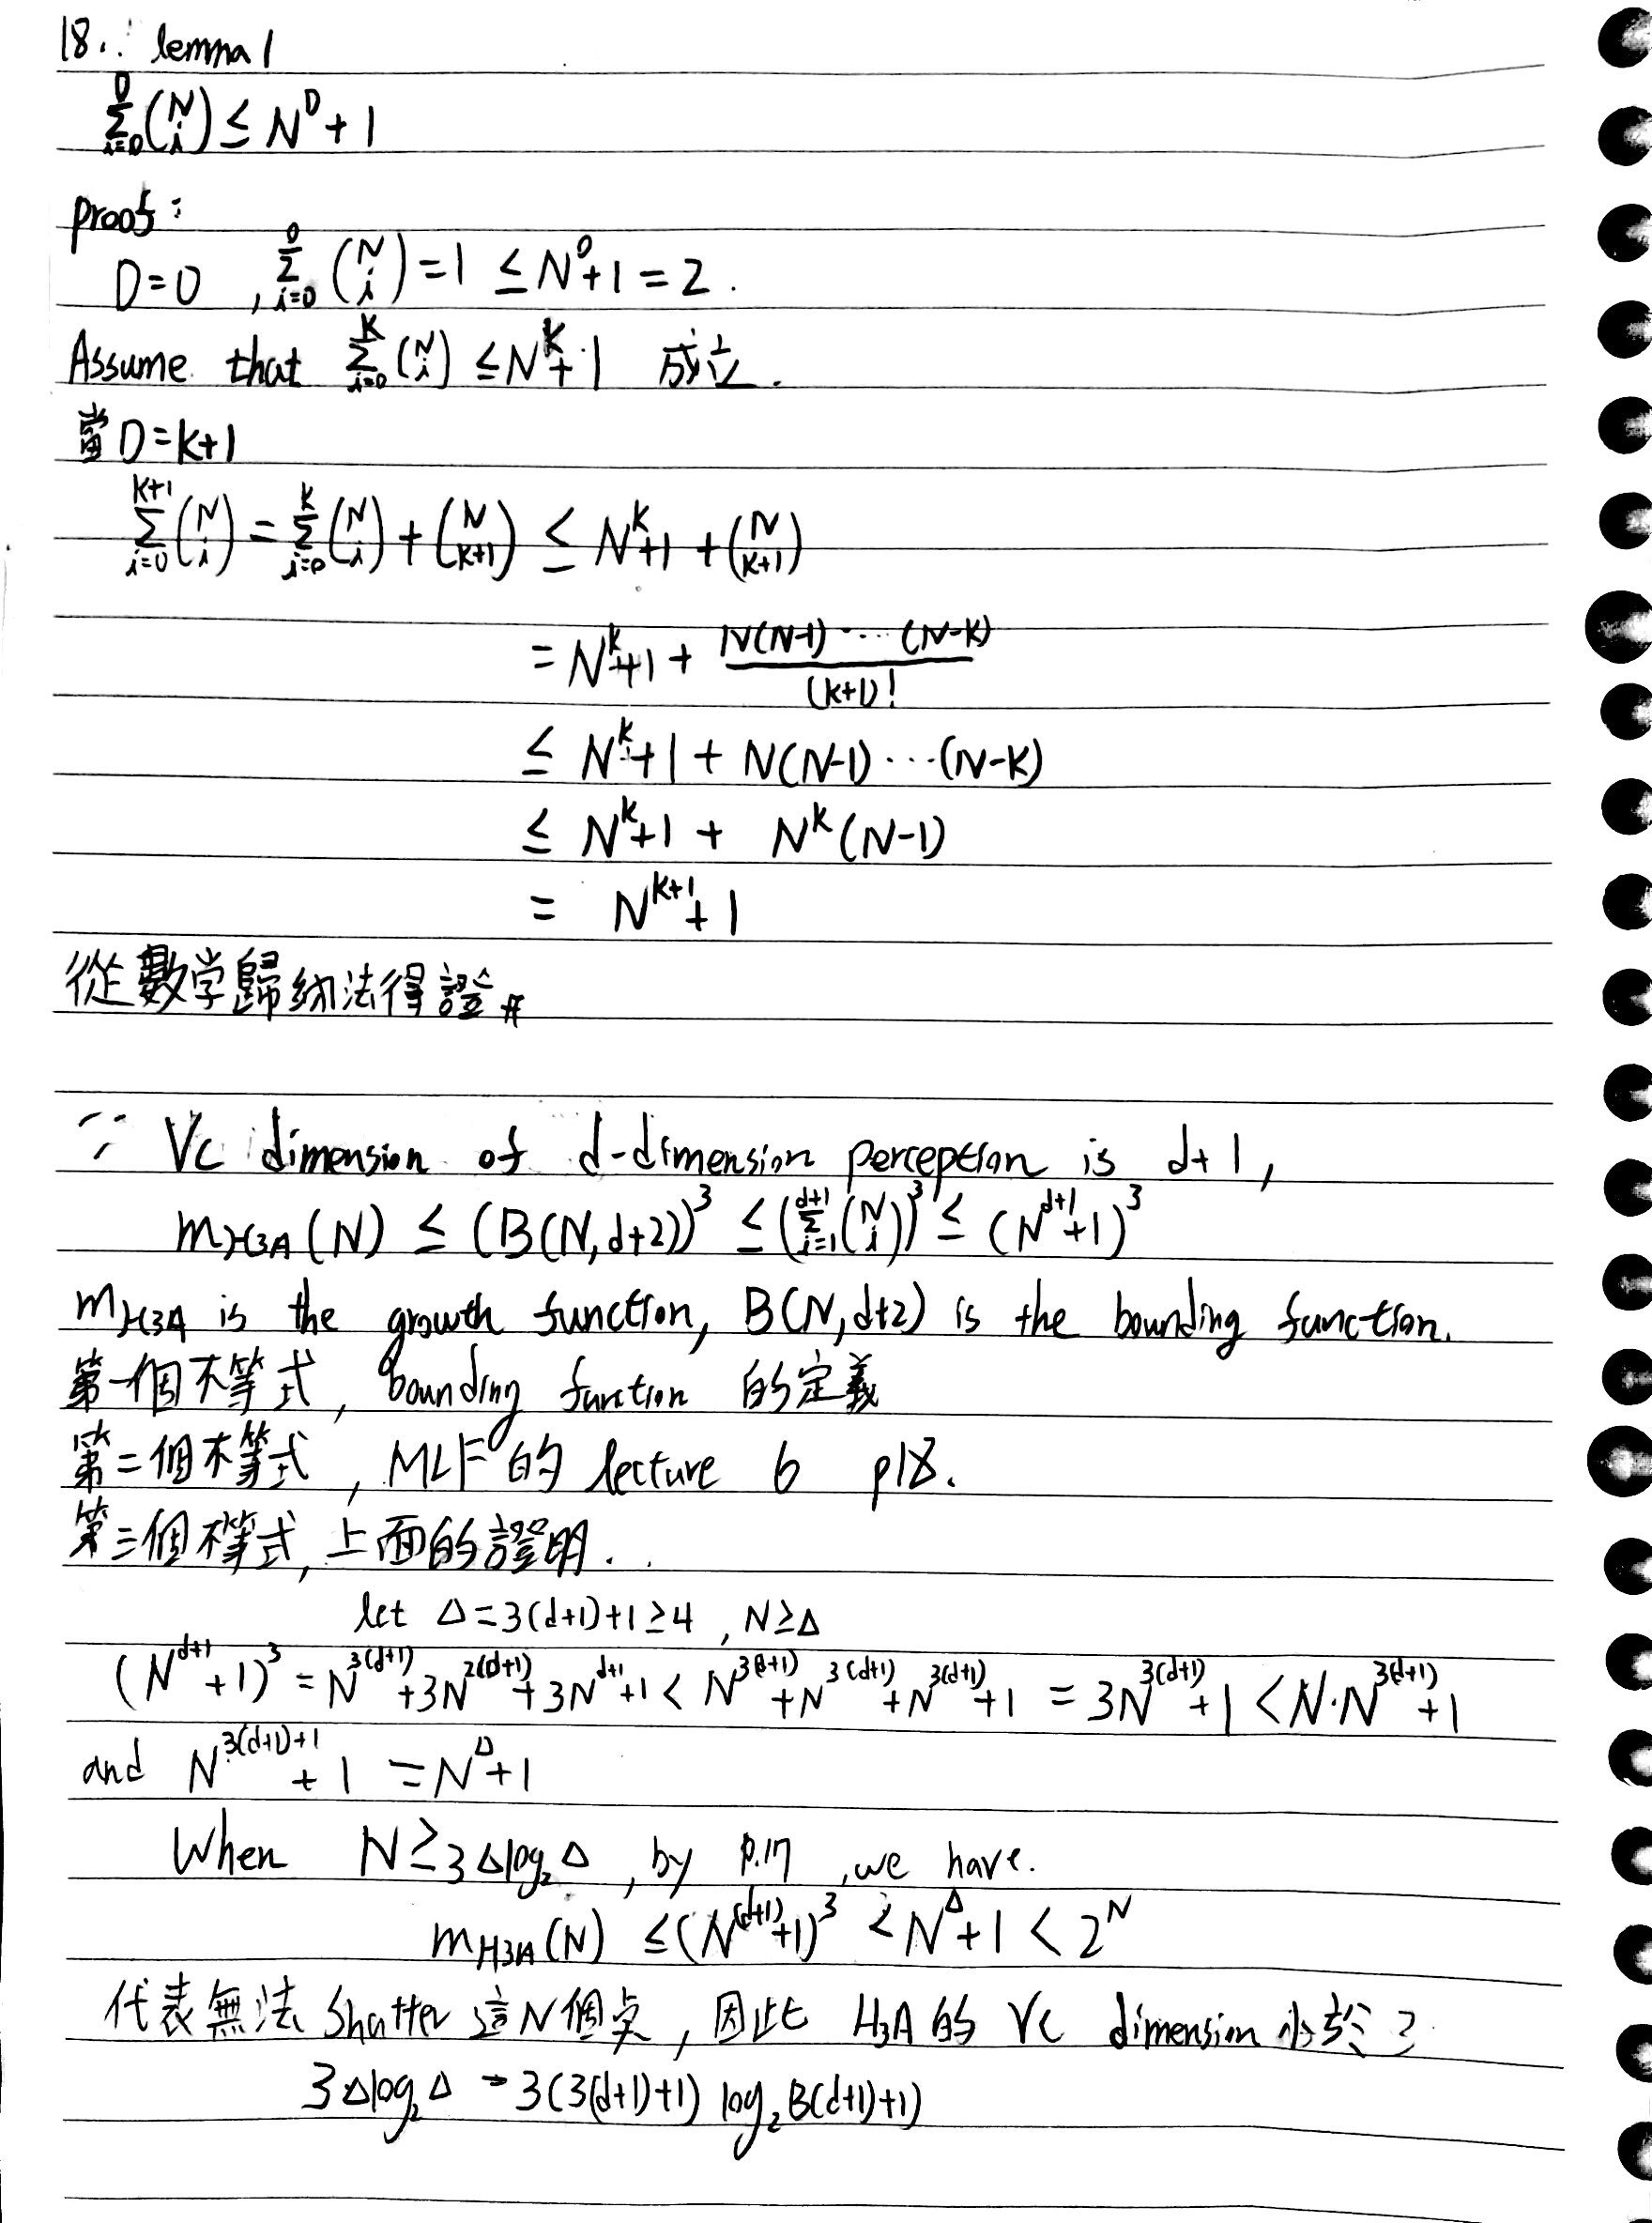 18. lemma 1
∑_{i=0}^{D} (N i) ≤ N^D + 1
proof:
D=0 , ∑_{i=0}^{0} (N i) = 1 ≤ N^0+1 = 2.
Assume that ∑_{i=0}^{K} (N i) ≤ N^K+1 成立.
當 D=k+1
∑_{i=0}^{k+1} (N i) = ∑_{i=0}^{k} (N i) + (N k+1) ≤ N^k+1 + (N k+1)
= N^k+1 + N(N-1)⋯(N-k) / (k+1)!
≤ N^k+1 + N(N-1)⋯(N-k)
≤ N^k+1 + N^k(N-1)
= N^{k+1}+1
從數学歸納法得證#
∵ VC dimension of d-dimension perception is d+1,
m_{H3A}(N) ≤ (B(N,d+2))^3 ≤ (∑_{i=1}^{d+1} (N i))^3 ≤ (N^{d+1}+1)^3
m_{H3A} is the growth function, B(N,d+2) is the bounding function.
第一個不等式, bounding function 的定義
第二個不等式, MLF的 lecture 6 p18.
第三個不等式, 上面的證明.
let Δ=3(d+1)+1≥4 , N≥Δ
(N^{d+1}+1)^3 = N^{3(d+1)}+3N^{2(d+1)}+3N^{d+1}+1 < N^{3(d+1)}+N^{3(d+1)}+N^{3(d+1)}+1 = 3N^{3(d+1)}+1 < N·N^{3(d+1)}+1
and N^{3(d+1)+1}+1 = N^Δ+1
When N≥3Δlog₂Δ, by p.17, we have.
m_{H3A}(N) ≤ (N^{(d+1)}+1)^3 < N^Δ+1 < 2^N
代表無法 shatter 這N個点, 因此 H3A 的 VC dimension 小於
3Δlog₂Δ = 3(3(d+1)+1) log₂(3(d+1)+1)